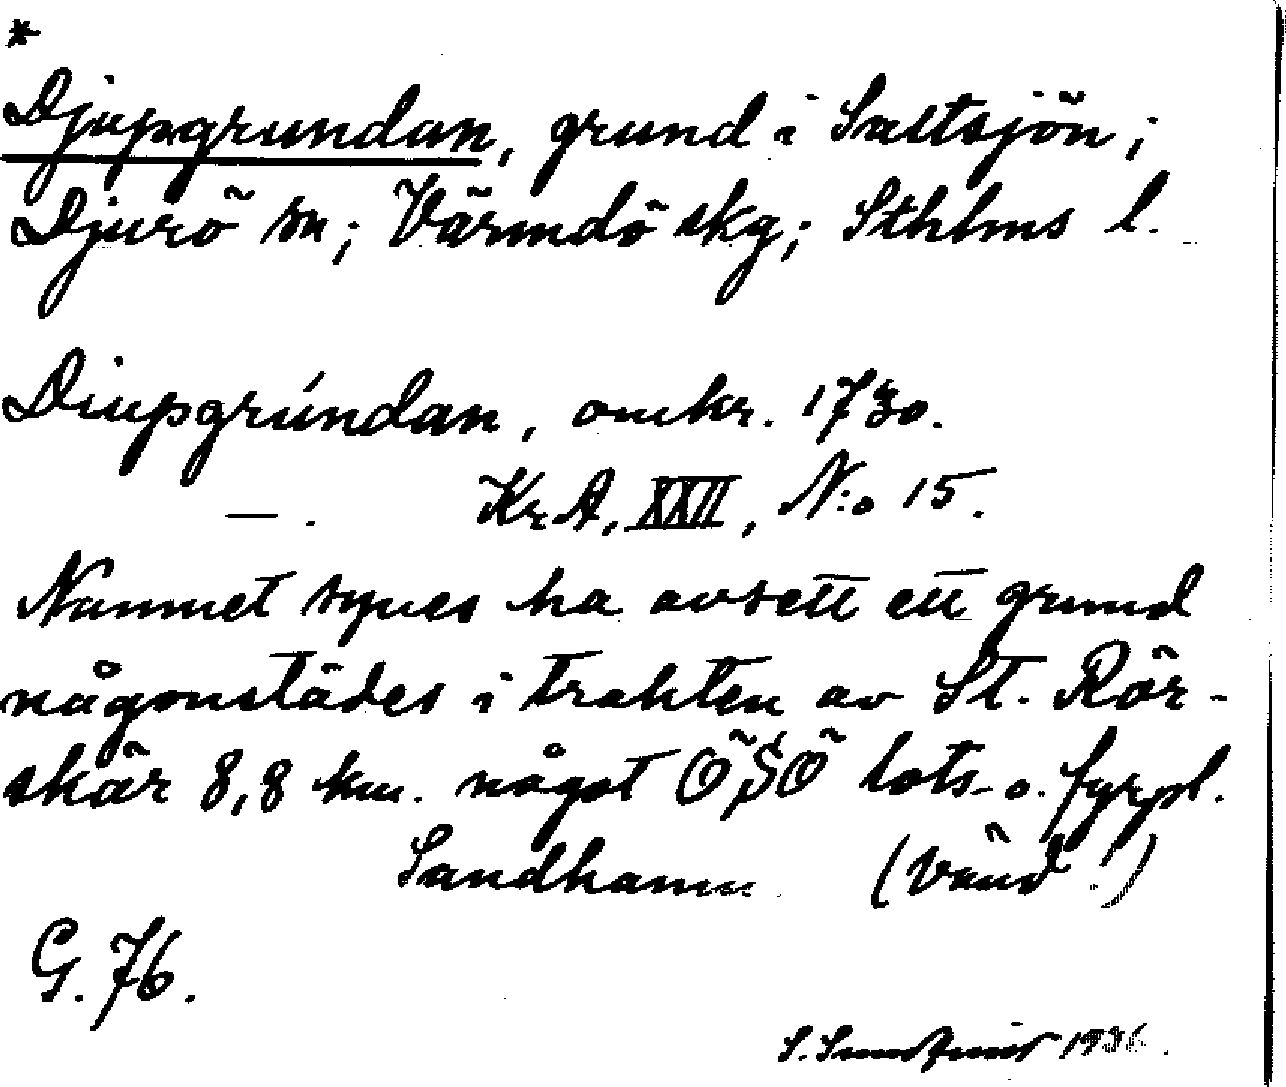 *
Djupgrundan, grund i Saltsjön;
Djurö sn; Värmdö skg; Sthlms l.
Diupgrúndan, omkr. 1730.
— . KrA, XXII, N:o 15.
Namnet synes ha avsett ett grund
någonstädes i trakten av St. Rör-
skär 8,8 km. något ÖSÖ lots- o. fyrpl.
Sandhamn. (Vänd!)
G. 76.
S. 1936.